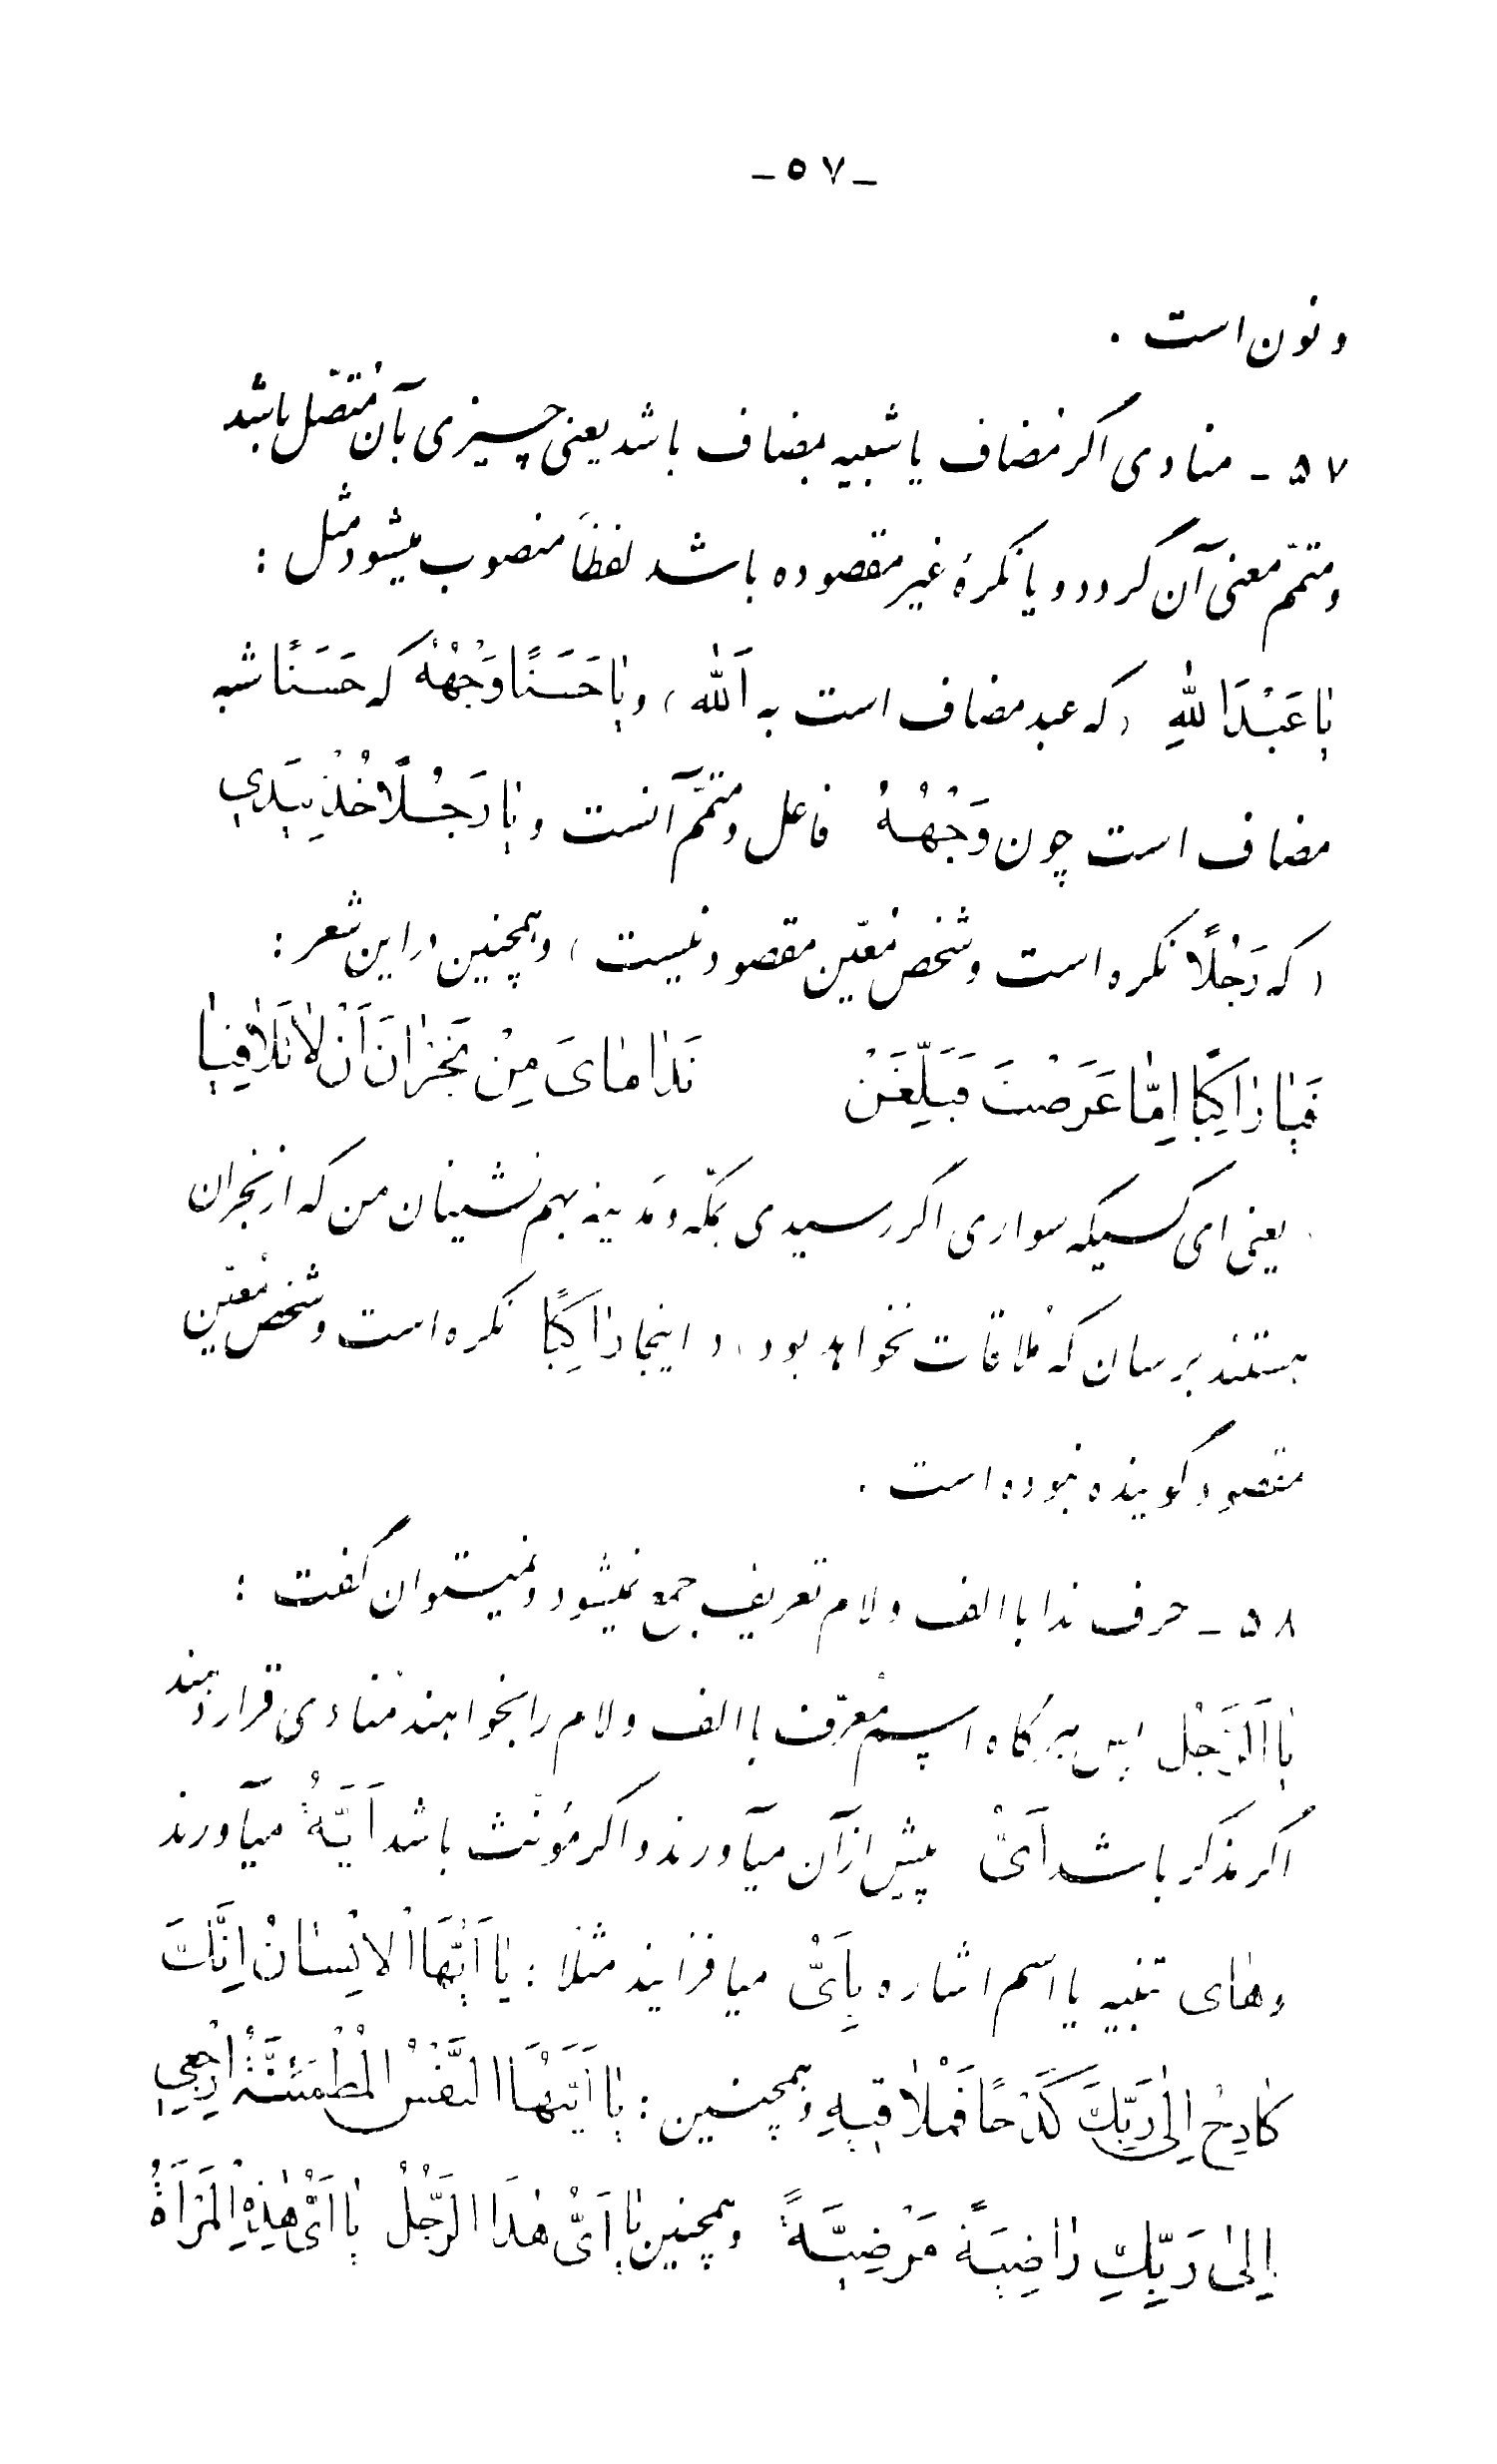 ـ۵۷ـ
و نون است .
۵۷ ـ منادی اگر مُضاف یا شبیه بمضاف باشد یعنی چیزی بآن مُتّصل باشد
و متمّم معنی آن گردد و یا نکرۀ غیر مقصوده باشد لفظاً منصوب میشود مثل :
یٰا عَبْدَ اللّٰهِ (که عبد مضاف است به اَللّٰه) و یٰا حَسَنًا وَجْهُهُ که حَسَنًا شبه
مضاف است چون وَجْهُهُ فاعل و متمّم آنست و یٰا رَجُلًا خُذْ بِیَدِی
(که رَجُلًا نکره است و شخص مُعیّن مقصود نیست) و همچنین در این شعر :
فَیٰا رٰاکِبًا اِمّٰا عَرَضْتَ فَبَلِّغَنْ نَدٰامٰایَ مِنْ نَجْرٰانَ اَنْ لٰا تَلٰاقِیٰا
یعنی ای کسیکه سواری اگر رسیدی بمکّه و مَدینه بهم نشینان من که از نجران
هستند برسان که مُلاقات نخواهد بود، و اینجا رٰاکِبًا نکره است و شخص مُعیّن
مقصود گوینده نبوده است .
۵۸ ـ حرف ندا با الف و لام تعریف جمع نمیشود و نمیتوان گفت :
یٰا اَلرَّجُلُ پس هرگاه اسم مُعرّف با الف و لام را بخواهند مُنادی قرار دهند
اگر مذکر باشد اَیُّ پیش از آن میآورند و اگر مؤنّث باشد اَیَّةُ میآورند
و هٰای تنبیه یا اسم اشاره بِاَیُّ میافزایند مثلا : یٰا اَیُّهَا الْاِنْسٰانُ اِنَّکَ
کٰادِحٌ اِلٰی رَبِّکَ کَدْحًا فَمُلٰاقِیهِ و همچنین : یٰا اَیَّتُهَا النَّفْسُ الْمُطْمَئِنَّةُ ارْجِعِی
اِلٰی رَبِّکِ رٰاضِیَةً مَرْضِیَّةً و همچنین یٰا اَیُّ هٰذَا الرَّجُلُ یٰا اَیُّ هٰذِهِ الْمَرْاَةُ